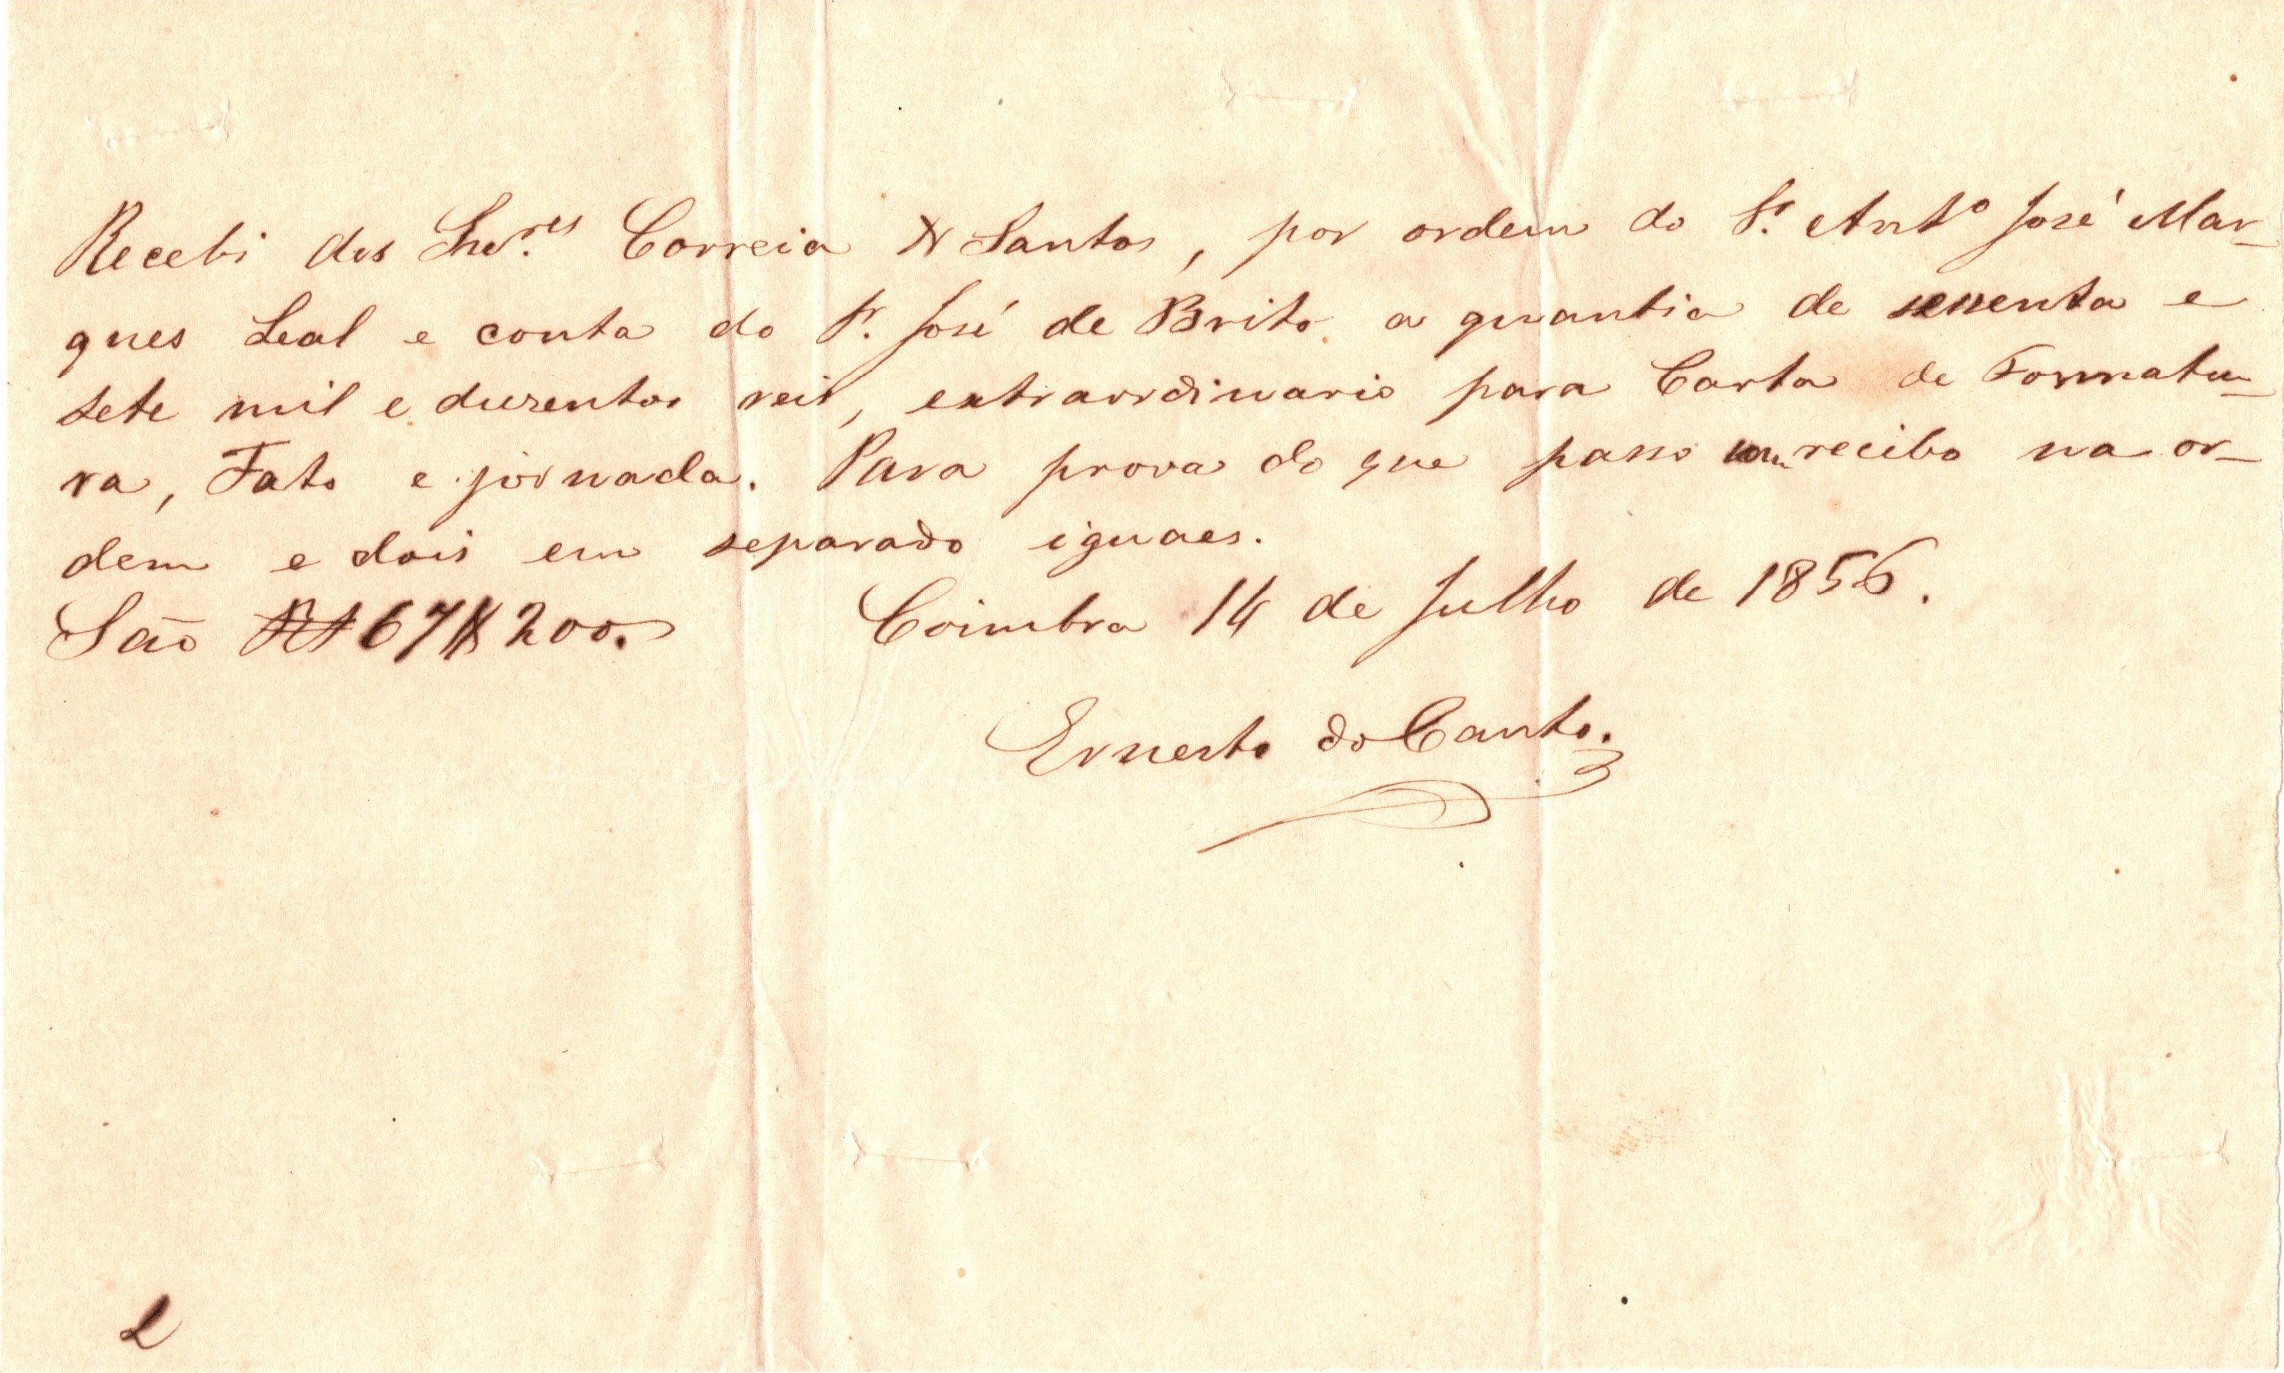 Recebi dos Snr.es Correia & Santos, por ordem do Sr. Anto José Mar-
ques Leal e conta do Sr. José de Brito a quantia de sessenta e
sete mil e duzentos reis, extraordinario para Carta de Formatu-
ra, Fato e jornada. Para prova do que passo um recibo na or-
dem e dois em separado iguaes.
São Rs 67$200. Coimbra 14 de Julho de 1856.
Ernesto do Canto.